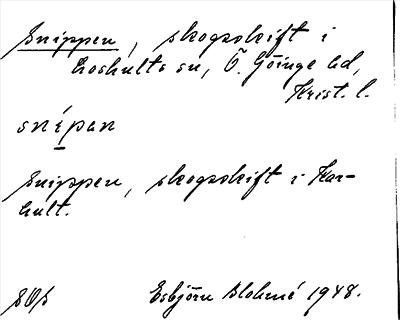 Snippen, skogsskift i
Loshults sn, Ö. Göinge hd,
Krist. l.
snípan
Snippen, skogsskift i Kar-
hult.
SOS Esbjörn Blohmé 1948.